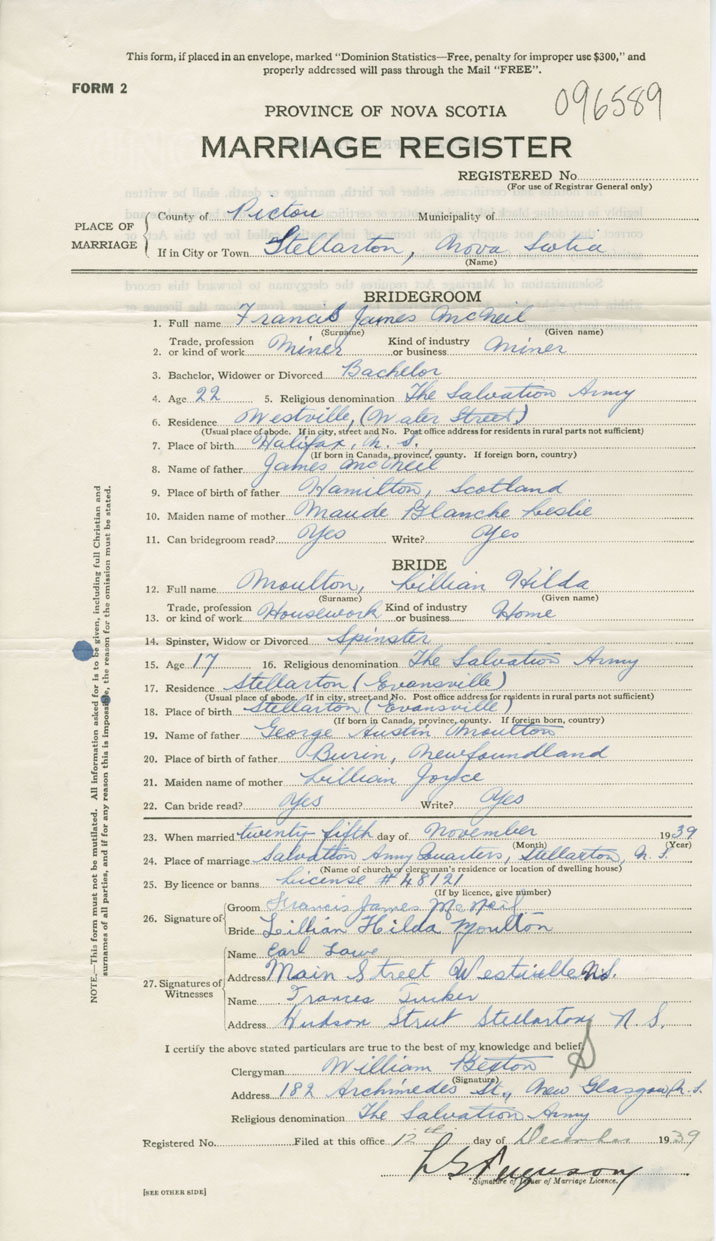 This form, if placed in an envelope, marked "Dominion Statistics—Free, penalty for improper use $300," and
properly addressed will pass through the Mail "FREE".
FORM 2
096589
PROVINCE OF NOVA SCOTIA
MARRIAGE REGISTER
REGISTERED No.
(For use of Registrar General only)
PLACE OF MARRIAGE
County of Pictou Municipality of
If in City or Town Stellarton, Nova Scotia
(Name)
BRIDEGROOM
1. Full name Francis James McNeil
(Surname) (Given name)
2. Trade, profession or kind of work Miner Kind of industry or business Miner
3. Bachelor, Widower or Divorced Bachelor
4. Age 22 5. Religious denomination The Salvation Army
6. Residence Westville, (Water Street)
(Usual place of abode. If in city, street and No. Post office address for residents in rural parts not sufficient)
7. Place of birth Halifax, N. S.
(If born in Canada, province, county. If foreign born, country)
8. Name of father James McNeil
9. Place of birth of father Hamilton, Scotland
10. Maiden name of mother Maude Blanche Leslie
11. Can bridegroom read? Yes Write? Yes
BRIDE
12. Full name Moulton, Lillian Hilda
(Surname) (Given name)
13. Trade, profession or kind of work Housework Kind of industry or business Home
14. Spinster, Widow or Divorced Spinster
15. Age 17 16. Religious denomination The Salvation Army
17. Residence Stellarton (Evansville)
(Usual place of abode. If in city, street and No. Post office address for residents in rural parts not sufficient)
18. Place of birth Stellarton (Evansville)
(If born in Canada, province, county. If foreign born, country)
19. Name of father George Austin Moulton
20. Place of birth of father Burin, Newfoundland
21. Maiden name of mother Lillian Joyce
22. Can bride read? Yes Write? Yes
23. When married twenty fifth day of November 1939
(Month) (Year)
24. Place of marriage Salvation Army Quarters, Stellarton, N. S.
(Name of church or clergyman's residence or location of dwelling house)
25. By licence or banns License # 48121
(If by licence, give number)
26. Signature of
Groom Francis James McNeil
Bride Lillian Hilda Moulton
27. Signatures of Witnesses
Name Carl Lowe
Address Main Street Westville N.S.
Name Frances Tucker
Address Hudson Street Stellarton N. S.
I certify the above stated particulars are true to the best of my knowledge and belief.
Clergyman William Bexton
(Signature)
Address 182 Archimedes St., New Glasgow, N. S.
Religious denomination The Salvation Army
Registered No. Filed at this office 12th day of December 1939
Ferguson
Signature of Issuer of Marriage Licence.
[SEE OTHER SIDE]
NOTE.—This form must not be mutilated. All information asked for is to be given, including full Christian and
surnames of all parties, and if for any reason this is impossible, the reason for the omission must be stated.